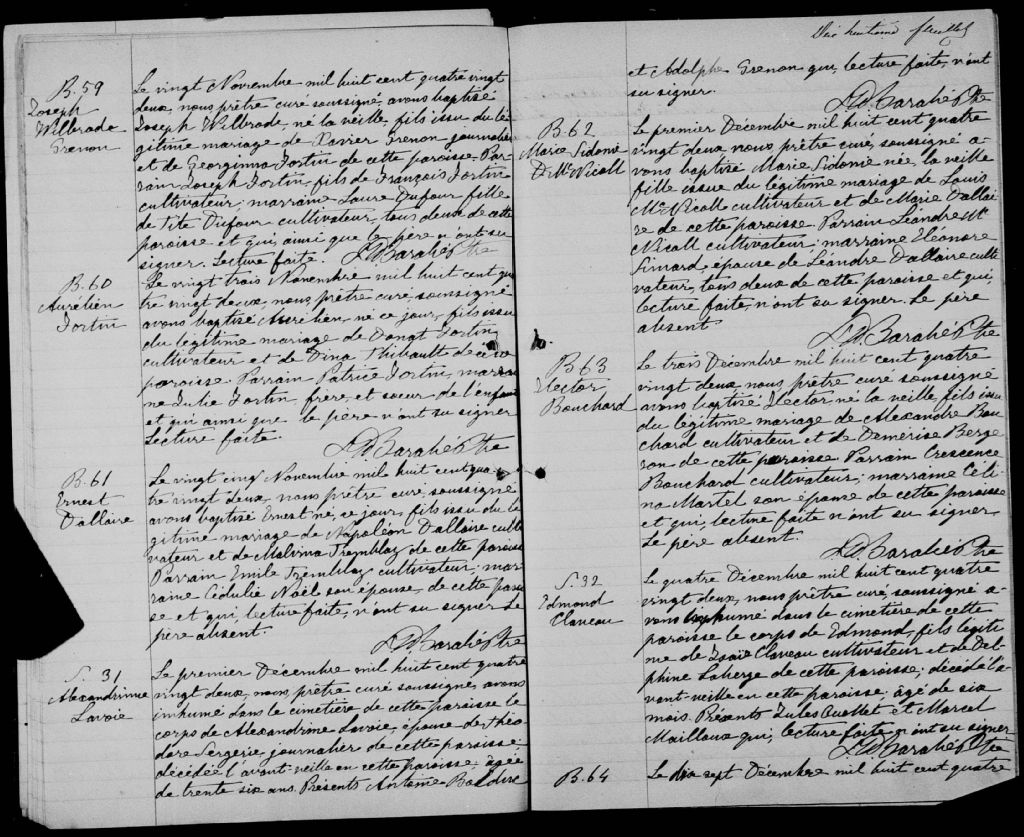 B. 59
Joseph
Wilbrode
Grenon
Le vingt Novembre mil huit cent quatre vingt
deux, nous prêtre curé soussigné, avons baptisé
Joseph Wilbrode, né la veille, fils issu du lé-
gitime mariage de Xavier Grenon journalier
et de Georginna Fortin de cette paroisse. Par-
rain Joseph Fortin, fils de François Fortin
cultivateur; marraine Laure Dufour fille
de Tite Dufour cultivateur, tous deux de cette
paroisse et qui, ainsi que le père n'ont su
signer. Lecture faite.
Ptre
B. 60
Aurélien
Fortin
Le vingt trois Novembre mil huit cent qua
tre vingt deux, nous, prêtre curé, soussigné
avons baptisé Aurélien, né ce jour, fils issu
du légitime mariage de Donat Fortin
cultivateur et de Dina Thibault de cette
paroisse. Parrain Patrice Fortin, marrai
ne Julie Fortin, frère et soeur de l'enfant
et qui ainsi que le père n'ont su signer
Lecture faite.
Ptre
B. 61
Ernest
Dallaire
Le vingt cinq Novembre mil huit cent qua-
tre vingt deux, nous, prêtre curé, soussigné
avons baptisé Ernest né, ce jour, fils issu du lé
gitime mariage de Napoléon Dallaire culti
vateur et de Malvina Tremblay de cette paroisse
Parrain Emile Tremblay cultivateur; mar-
raine Cédulie Noël son épouse, de cette parois
se et qui, lecture faite, n'ont su signer Le
père absent.
Ptre
S. 31
Alexandrinne
Lavoie
Le premier Décembre mil huit cent quatre
vingt deux, nous, prêtre curé soussigné, avons
inhumé dans le cimetière de cette paroisse le
corps de Alexandrine Lavoie, épouse de Théo
dore Sergerie journalier de cette paroisse;
décédée l'avant-veille en cette paroisse, âgée
de trente six ans. Présents Antoine
Dix huitième feuillet
et Adolphe Grenon qui, lecture faite, n'ont
su signer.
Ptre
B. 62
Marie Sidonie
D. Mc Nicoll
Le premier Décembre mil huit cent quatre
vingt deux nous prêtre curé, soussigné a-
vons baptisé Marie Sidonie née, la veille
fille issue du légitime mariage de Louis
Mc Nicoll cultivateur et de Marie Dallai
re de cette paroisse. Parrain Léandre Mc
Nicoll cultivateur; marraine Eléonore
Simard, épouse de Léandre Dallaire culti
vateur, tous deux de cette paroisse et qui,
lecture faite, n'ont su signer. Le père
absent.
Ptre
B. 63
Hector
Bouchard
Le trois Décembre mil huit cent quatre
vingt deux, nous, prêtre curé soussigné
avons baptisé Hector né la veille, fils issu
du légitime mariage de Alexandre Bou
chard cultivateur et de Démerise Berge
ron de cette paroisse Parrain Crescence
Bouchard cultivateur; marraine Céli
na Martel son épouse de cette paroisse
et qui, lecture faite n'ont su signer
Le père absent.
Ptre
S. 32
Edmond
Claveau
Le quatre Décembre mil huit cent quatre
vingt deux, nous, prêtre curé, soussigné a-
vons inhumé dans le cimetière de cette
paroisse le corps de Edmond, fils légiti
me de Isaïe Claveau cultivateur et de Del-
phine Laberge de cette paroisse; décédé l'a-
vant-veille en cette paroisse, âgé de six
mois. Présents Jules Ouellet et Marcel
Mailloux qui, lecture faite, n'ont su signer
Ptre
B. 64
Le dix sept Décembre mil huit cent quatre